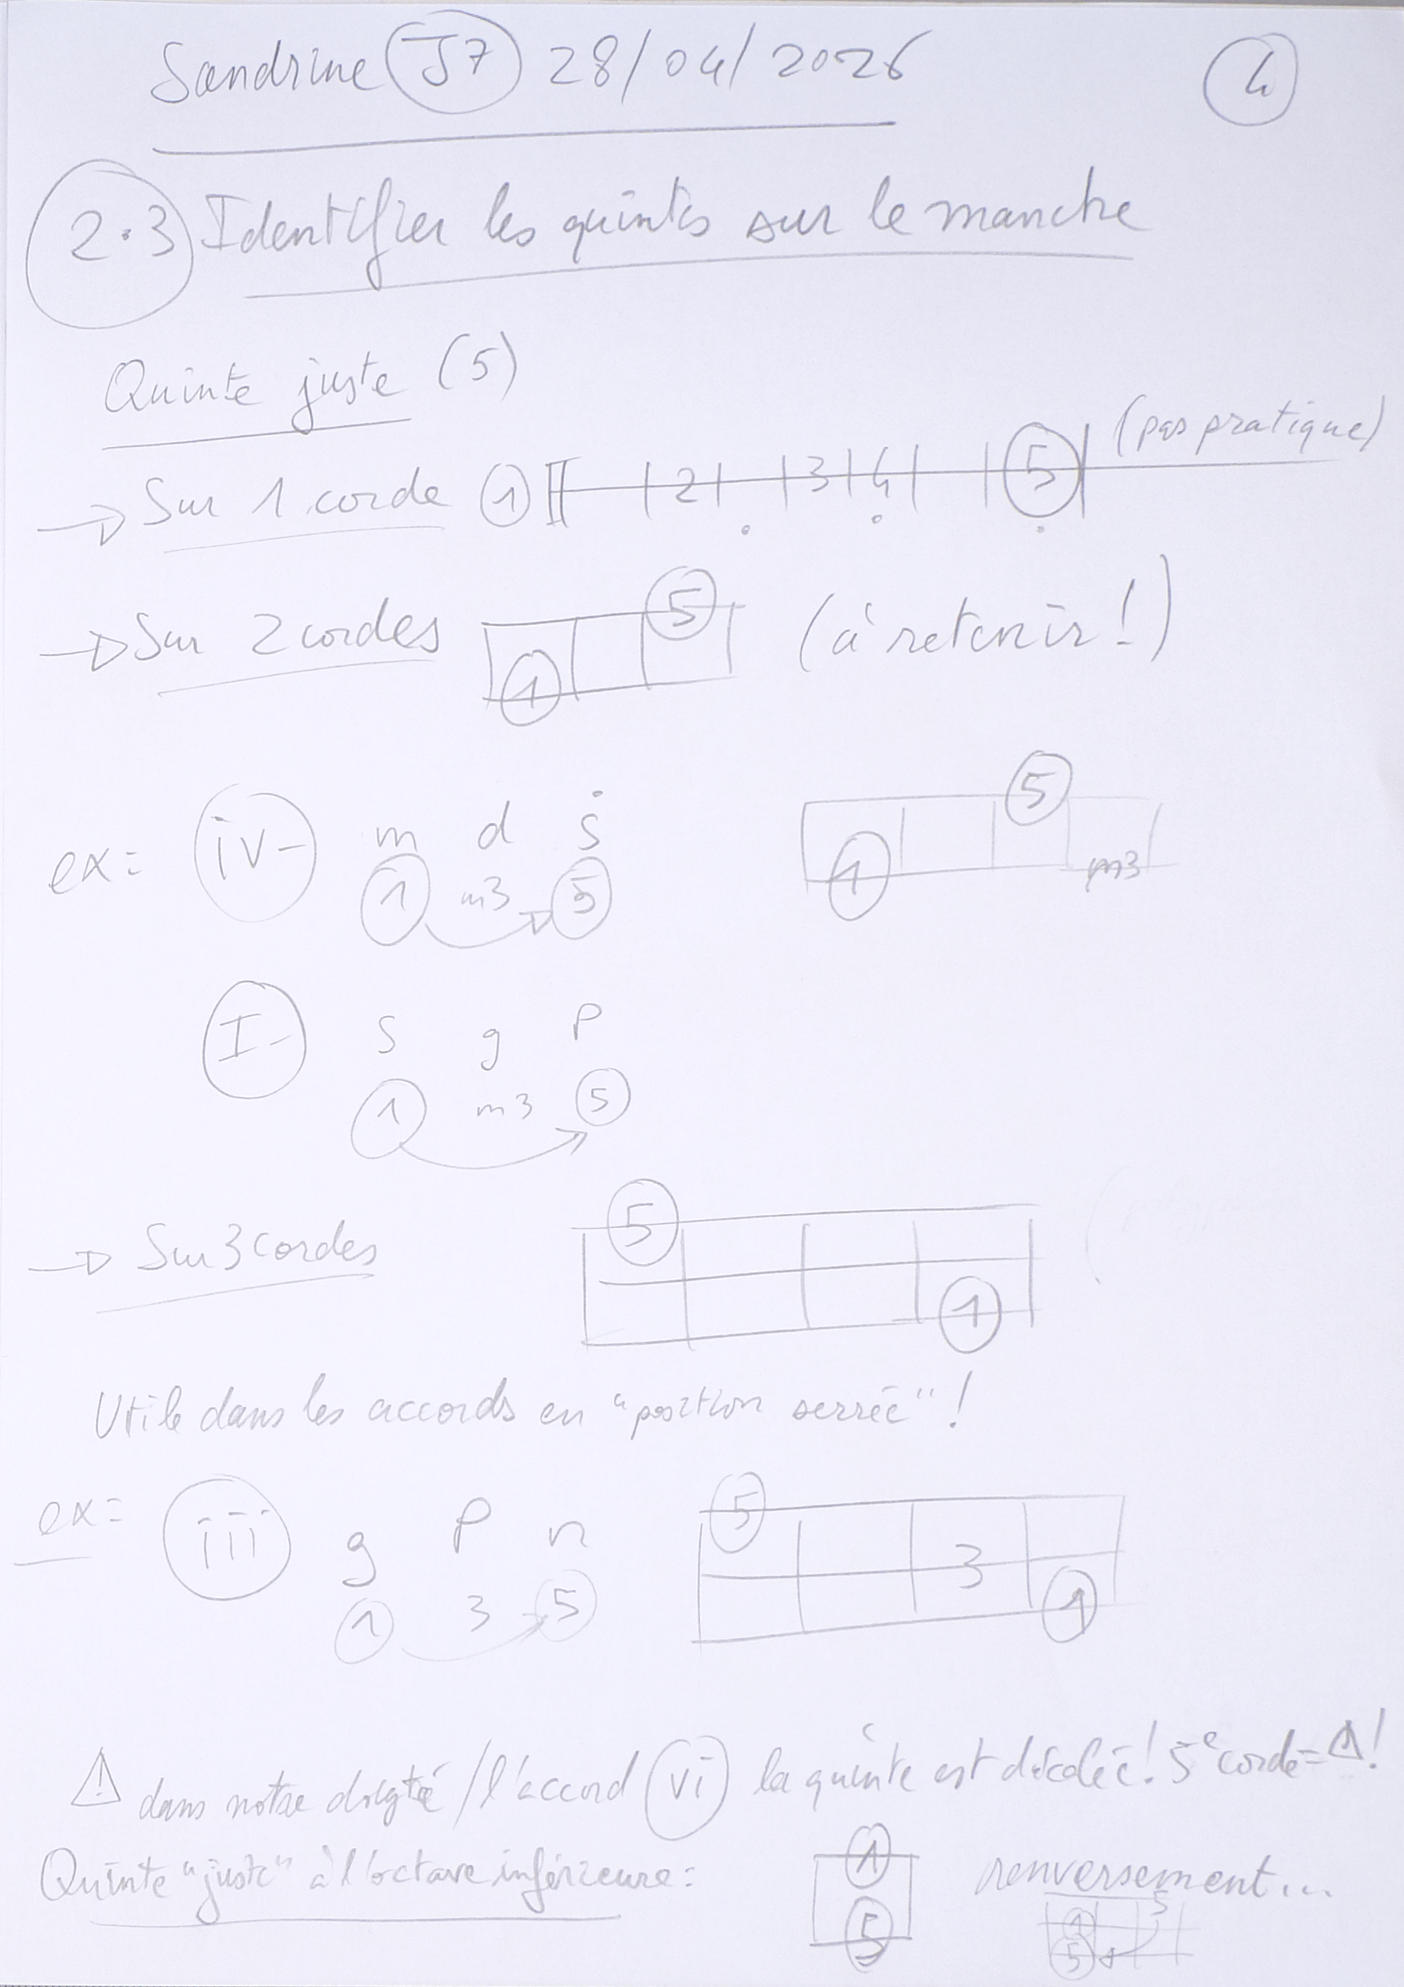 Sandrine J7 28/04/2026 4
2.3 Identifier les quintes sur le manche
Quinte juste (5)
→ Sur 1 corde 1 2 3 4 5 (pas pratique)
→ Sur 2 cordes 1 5 (à retenir !)
ex = iv- m d ṡ 5
1 m3 5 1 m3
I- S g P
1 m3 5
→ Sur 3 cordes 5 1
Utile dans les accords en "position serrée" !
ex = iii g P n 5
1 3 5 3 1
⚠ dans notre doigté / l'accord vi la quinte est décalée ! 5e corde = ⚠ !
Quinte "juste" à l'octave inférieure : 1 renversement...
5 1 5 5